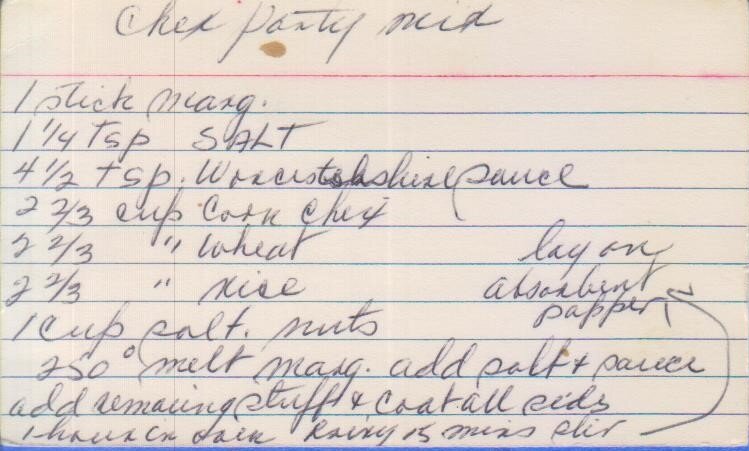 Chex party mix
1 stick marg.
1 1/4 tsp SALT
4 1/2 tsp. Worcestshire sauce
2 2/3 cup Corn Chex
2 2/3 " Wheat
2 2/3 " rice
lay on
absorbent
papper
1 cup salt. nuts
250° melt marg. add salt & sauce
add remaining stuff & coat all sids
1 hour in oven Every 15 mins stir